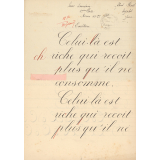 Celui-là est
riche qui reçoit
plus qu'il ne
consomme.
Celui-là est
riche qui reçoit
plus qu'il ne